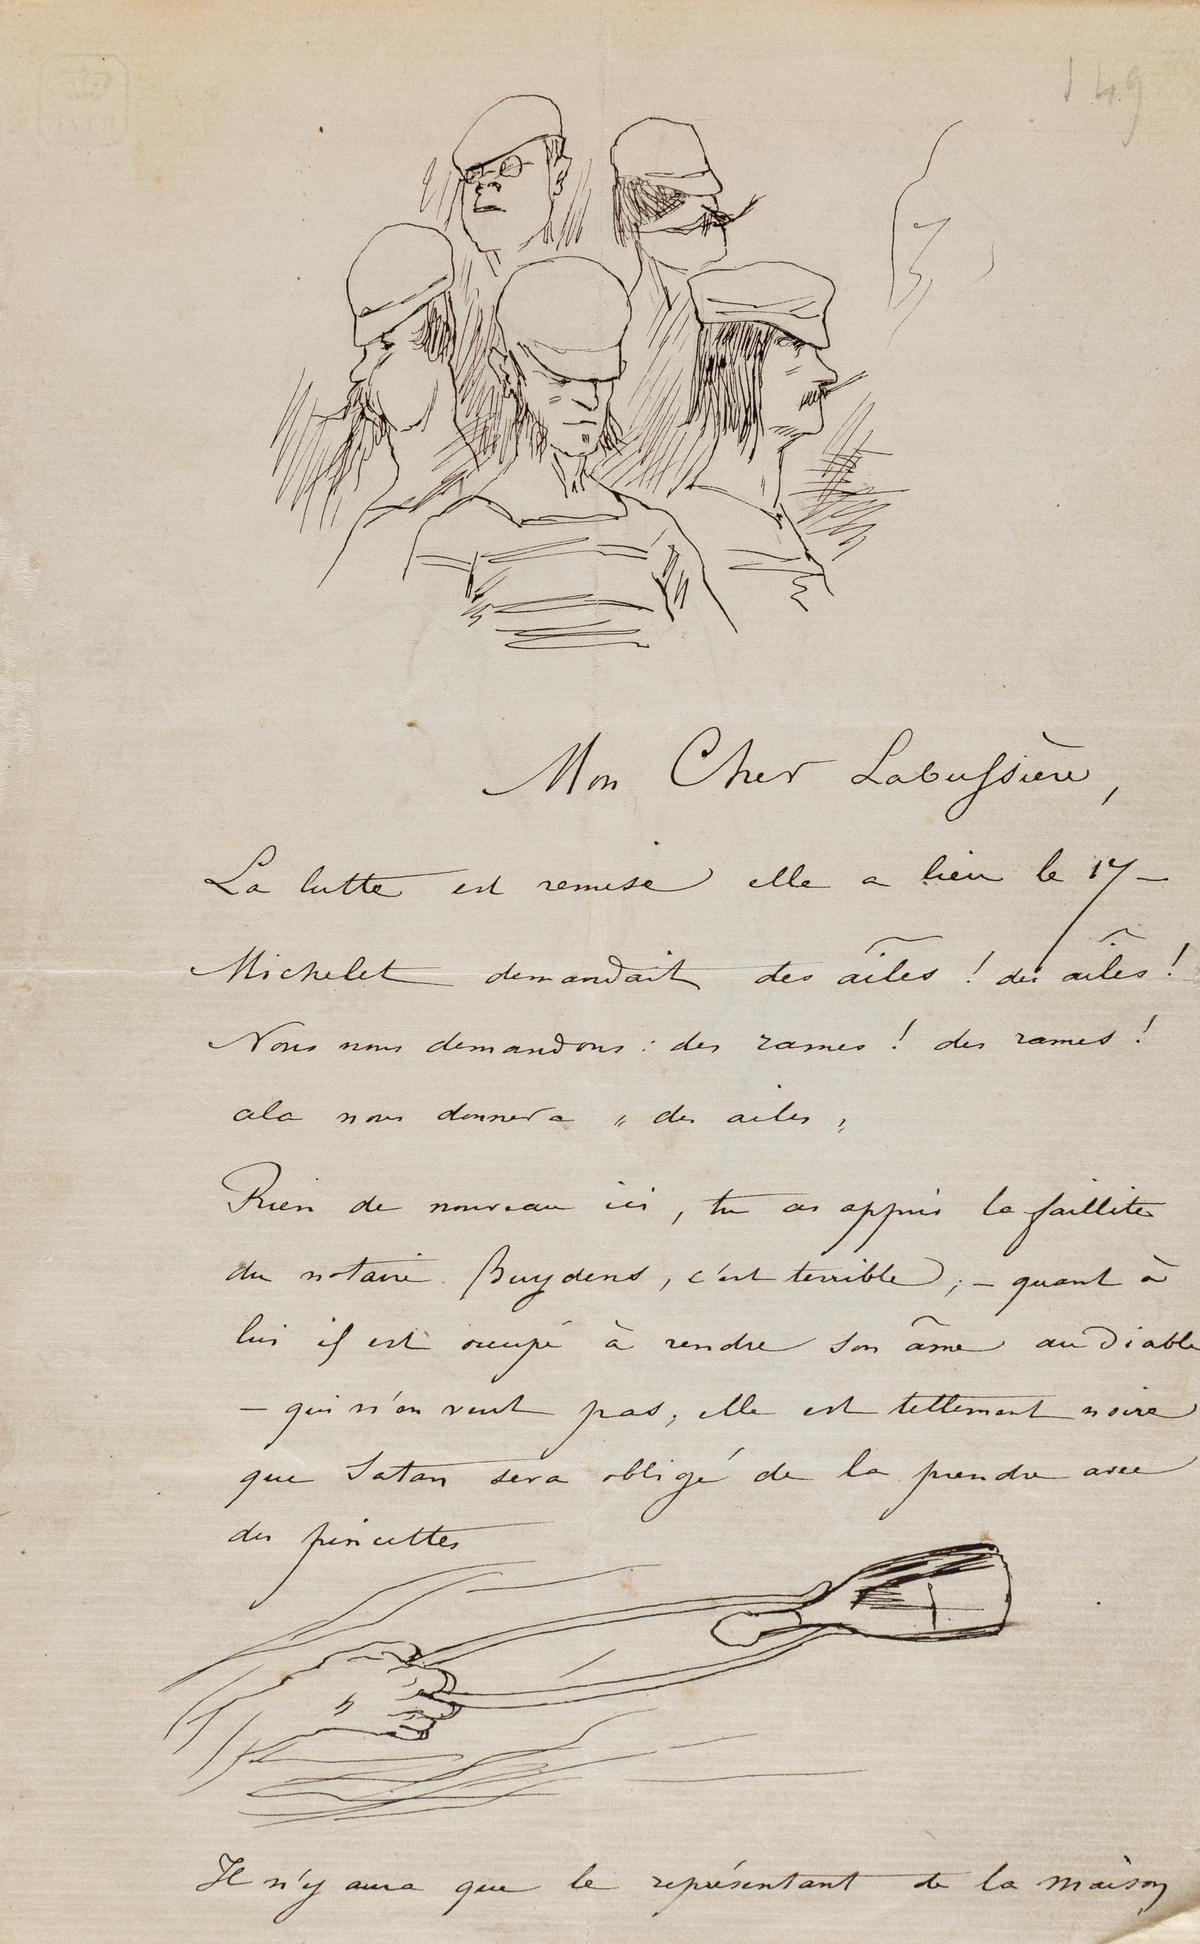 149
Mon Cher Labussière,
La lutte est remise elle a lieu le 17 —
Michelet demandait des aîles ! des aîles !
Nous nous demandons : des rames ! des rames !
cela nous donnera " des ailes "
Rien de nouveau ici, tu as appris la faillite
du notaire Buydens, c'est terrible, ; — quant à
lui il est occupé à rendre son âme au Diable
— qui n'en veut pas, elle est tellement noire
que Satan sera obligé de la prendre avec
des pincettes
Il n'y aura que le représentant de la maison